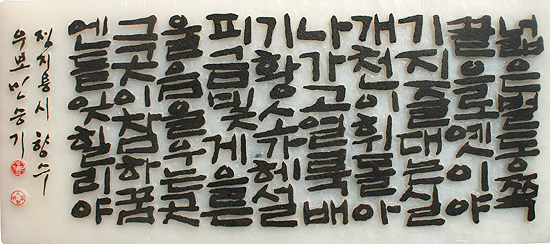 넓은벌동쪽
끝으로옛이야
기지줄대는실
개천이휘돌아
나가고얼룩배
기황소가헤설
피금빛게으른
울음을우는곳
그곳이참하꿈
엔들잊힐리야
정지용시 향수
우보민승기